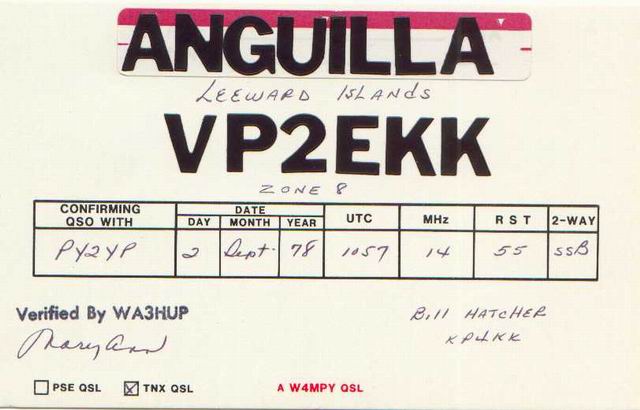 ANGUILLA
LEEWARD ISLANDS
VP2EKK
ZONE 8
CONFIRMING QSO WITH DATE DAY MONTH YEAR UTC MHz RST 2-WAY
PY2YP 2 Sept. 78 1057 14 55 SSB
Verified By WA3HUP
Mary Ann
Bill HATCHER
KP4KK
PSE QSL TNX QSL A W4MPY QSL